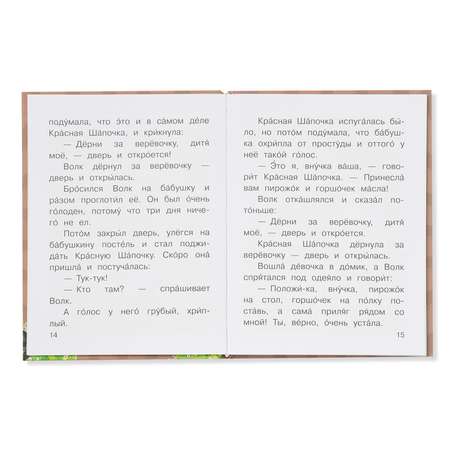 поду́мала, что э́то и в са́мом де́ле
Кра́сная Ша́почка, и кри́кнула:
— Дёрни за верёвочку, дитя́
моё, — дверь и откро́ется!
Волк дёрнул за верёвочку —
дверь и откры́лась.
Бро́сился Волк на ба́бушку и
ра́зом проглоти́л её. Он был о́чень
го́лоден, потому́ что три дня ниче-
го́ не ел.
Пото́м закры́л дверь, улёгся на
ба́бушкину посте́ль и стал поджи-
да́ть Кра́сную Ша́почку. Ско́ро она́
пришла́ и постуча́лась:
— Тук-тук!
— Кто там? — спра́шивает
Волк.
А го́лос у него́ гру́бый, хри́п-
лый.
14
Кра́сная Ша́почка испуга́лась бы́-
ло, но пото́м поду́мала, что ба́буш-
ка охри́пла от просту́ды и оттого́ у
неё тако́й го́лос.
— Э́то я, вну́чка ва́ша, — гово-
ри́т Кра́сная Ша́почка. — Принесла́
вам пирожо́к и горшо́чек ма́сла!
Волк отка́шлялся и сказа́л по-
то́ньше:
— Дёрни за верёвочку, дитя́
моё, — дверь и откро́ется.
Кра́сная Ша́почка дёрнула за
верёвочку — дверь и откры́лась.
Вошла́ де́вочка в до́мик, а Волк
спря́тался под одея́ло и говори́т:
— Положи́-ка, вну́чка, пирожо́к
на стол, горшо́чек на по́лку по-
ста́вь, а сама́ приля́г ря́дом со
мной! Ты, ве́рно, о́чень уста́ла.
15